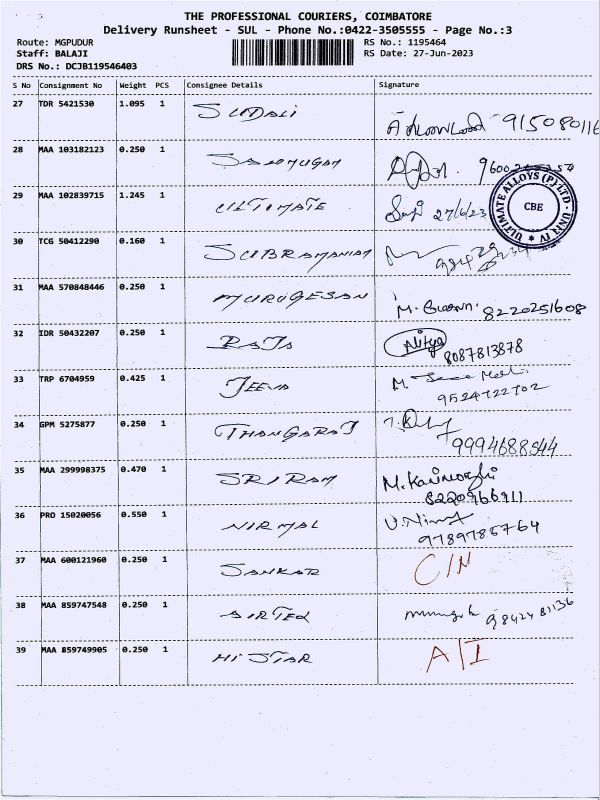 THE PROFESSIONAL COURIERS, COIMBATORE
Delivery Runsheet - SUL - Phone No.:0422-3505555 - Page No.:3
Route: MGPUDUR RS No.: 1195464
Staff: BALAJI RS Date: 27-Jun-2023
DRS No.: DCJB119546403
S No Consignment No Weight PCS Consignee Details Signature
27 TDR 5421530 1.095 1 SUDALI
28 MAA 103182123 0.250 1 SANMUGAM
29 MAA 102839715 1.245 1 ULTIMATE 27/6/23
ULTIMATE ALLOYS (P) LTD - UNIT IV ★
CBE
30 TCG 50412290 0.160 1 SUBRAMANIAM
31 MAA 570848446 0.250 1 MURUGESAN M. 8220251608
32 IDR 50432207 0.250 1 RAJA Alitya
8087813878
33 TRP 6704959 0.425 1 JEEVA M.
9524722702
34 GPM 5275877 0.250 1 THANGARAJ
9994688544
35 MAA 299998375 0.470 1 SRIRAM M. Kanimozhi
8220966911
36 PRO 15020056 0.550 1 NIRMAL
9789785764
37 MAA 600121960 0.250 1 SANKAR C/N
38 MAA 859747548 0.250 1 AIRTEL 9842481136
39 MAA 859749905 0.250 1 HI STAR A/I